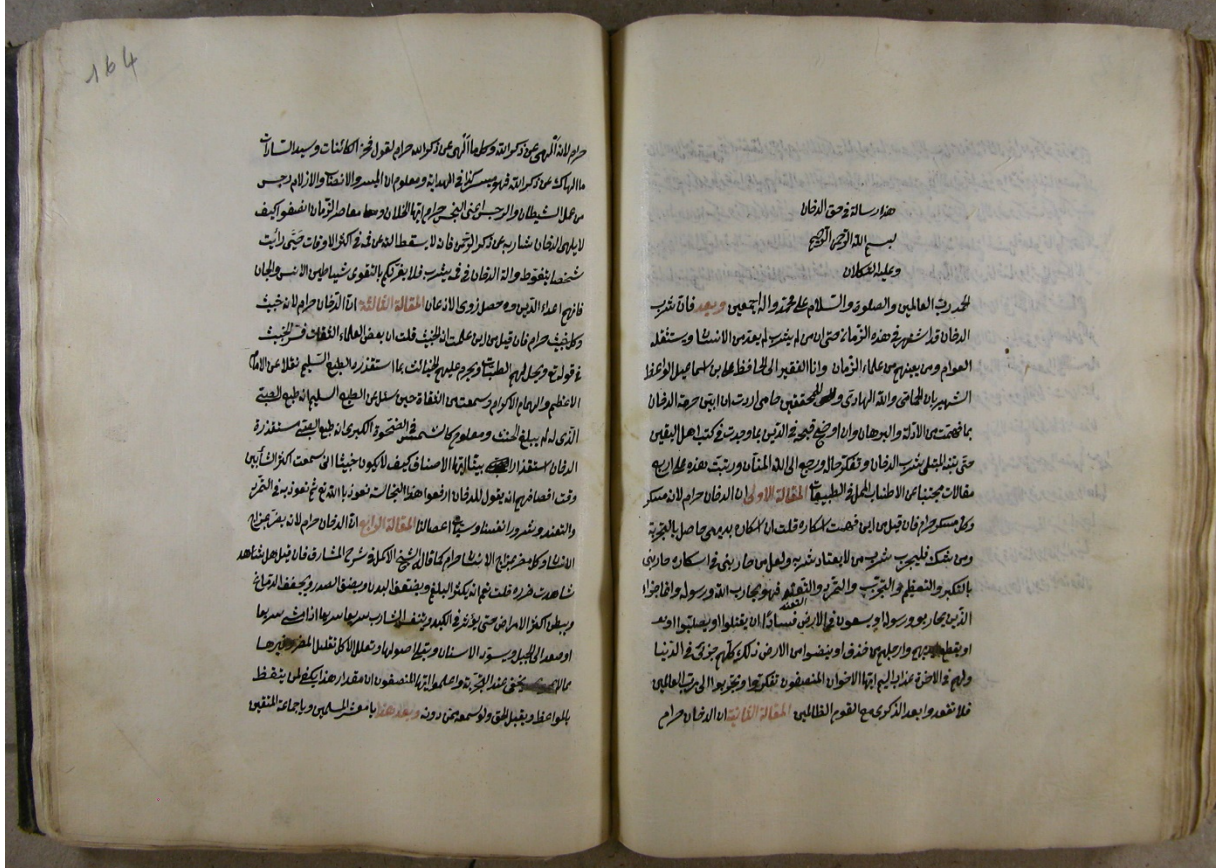 هذا رسالة في حق الدخان
بسم الله الرحمن الرحيم
وعليه التكلان
الحمد رب العالمين والصلوة والسلام على محمد واله اجمعين وبعد فان شرب
الدخان قد اشتهر في هذه الزمان حتى ان من لم يشرب لم يعد من الانسان ويستثقله
العوام ومن يعينهم من علماء الزمان وانا الفقير الى الحافظ بن اسماعيل الواعظ
الشهير بان والله الهادي وللمحققين حامي اردت ان ابين حرمة الدخان
بما فهمت من الادلة والبرهان وان اوضح قبحه في الدين بما وجدت في كتب اهل اليقين
حتى ينتبه المبتلى بشرب الدخان وتفكر حاله ورجع الى الله المنان ورتبت هذه على اربع
مقالات مجتنبا عن الاطناب الممل في الطبيعات المقالة الاولى ان الدخان حرام لانه مسكر
وكل مسكر حرام فان قيل من اين فهمت اسكاره قلت ان اسكاره بديهي حاصل بالتجربة
ومن شك فليجرب بشرب من لا يعتاد شربه ولعل من جادلني في اسكاره جادلني
بالتكبر والتعظم والتجرب والتمرد والتعند فهو يحارب الله ورسوله وانما جزاء
الذين يحاربو ورسوله ويسعون في الارض فسادا ان يقتلوا او يصلبوا او
او يقطع ايديهم وارجلهم من خلاف او ينفوا من الارض ذلك لهم خزي في الدنيا
ولهم في الاخرة عذاب اليم ايها الاخوان المنصفون تفكروا وتقربوا الى رب العالمين
فلا تقعدوا بعد الذكرى مع القوم الظالمين المقالة الثانية ان الدخان حرام
164
حرام لانه الهى عن ذكر الله وكل ما الهى عن ذكر الله حرام لقول فخر الكائنات وسيد السادات
ما الهاك عن ذكر الله فهو ميسر كذا في الهداية ومعلوم ان الميسر والانصاب والازلام رجس
من عمل الشيطان والرجس بمعنى النجس حرام ايها الخلان ويا معاصر الزمان انصفوا كيف
لا يلهى الدخان شاربه عن ذكر الرحمن فانه لا يسقط اله عن فمه في اكثر الاوقات حتى رأيت
شخصا يتغوط واله الدخان في فمه يشرب فلا يغرنكم بالتقوى شياطين الانس والجان
فانهم اعداء الدين ومحصل ذوى الاذعان المقالة الثالثة ان الدخان حرام لانه خبيث
وكل خبيث حرام فان قيل من اين علمت انه الخبيث قلت ان بعض العلماء الثقات فسر الخبيث
في قوله تع ويحل لهم الطيبات ويحرم عليهم الخبائث بما استقذره الطبع السليم نقلا عن الامام
الاعظم والهمام الاكرام وسمعت من الثقاة حين سئل عن الطبع السليم انه طبع الصبي
الذي له لم يبلغ الحنث ومعلوم كالشمس في الضحوة الكبرى انه طبع الصبي مستقذرة
الدخان استقذارا بيننا ايها الاصناف كيف لا يكون خبيثا انى سمعت اكثر الشائبين
وقت افصافهم انه يقول للدخان ارفعوا هذا النجاسة نعوذ بالله تع ثم نعوذ به في التمرد
والتعند وشرور انفسنا وسيئات اعمالنا المقالة الرابع ان الدخان حرام لانه يضر بمزاج
الانسان وكل مضر بمزاج الانسان حرام كما قاله الشيخ الاكمل في شرح المشارق فان قيل هل شاهد
شاهدت ضرره قلت نعم انه يكثر البلغم ويضعف البدن ويضيق الصدر ويجفف الدماغ
ويبطن اكثر الامراض حتى يؤثر في الكبد وينفس الشارب سريعا سريعا اذا مشى سريعا
او صعد الى الجبل ويسود الاسنان وينتج اصولها وتعلل الاكل تقلل المضر وغيرها
مما لا يخفى عند التجربة واعلموا ايها المنصفون ان مقدار هذا يكفي لمن يتعظ
بالمواعظ ويقبل الحق ولو سمعه ممن دونه وبعد هذا يا معشر المسلمين ويا جماعة المتقين